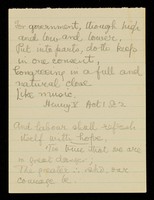 For government, though high
and low and lower,
Put into parts, doth keep
in one consent,
Congreeing in a full and
natural close
Like music.
Henry V Act 1 Sc 2
And labour shall refresh
itself with hope.
'Tis true that we are
in great danger;
The greater therefore our
courage be.